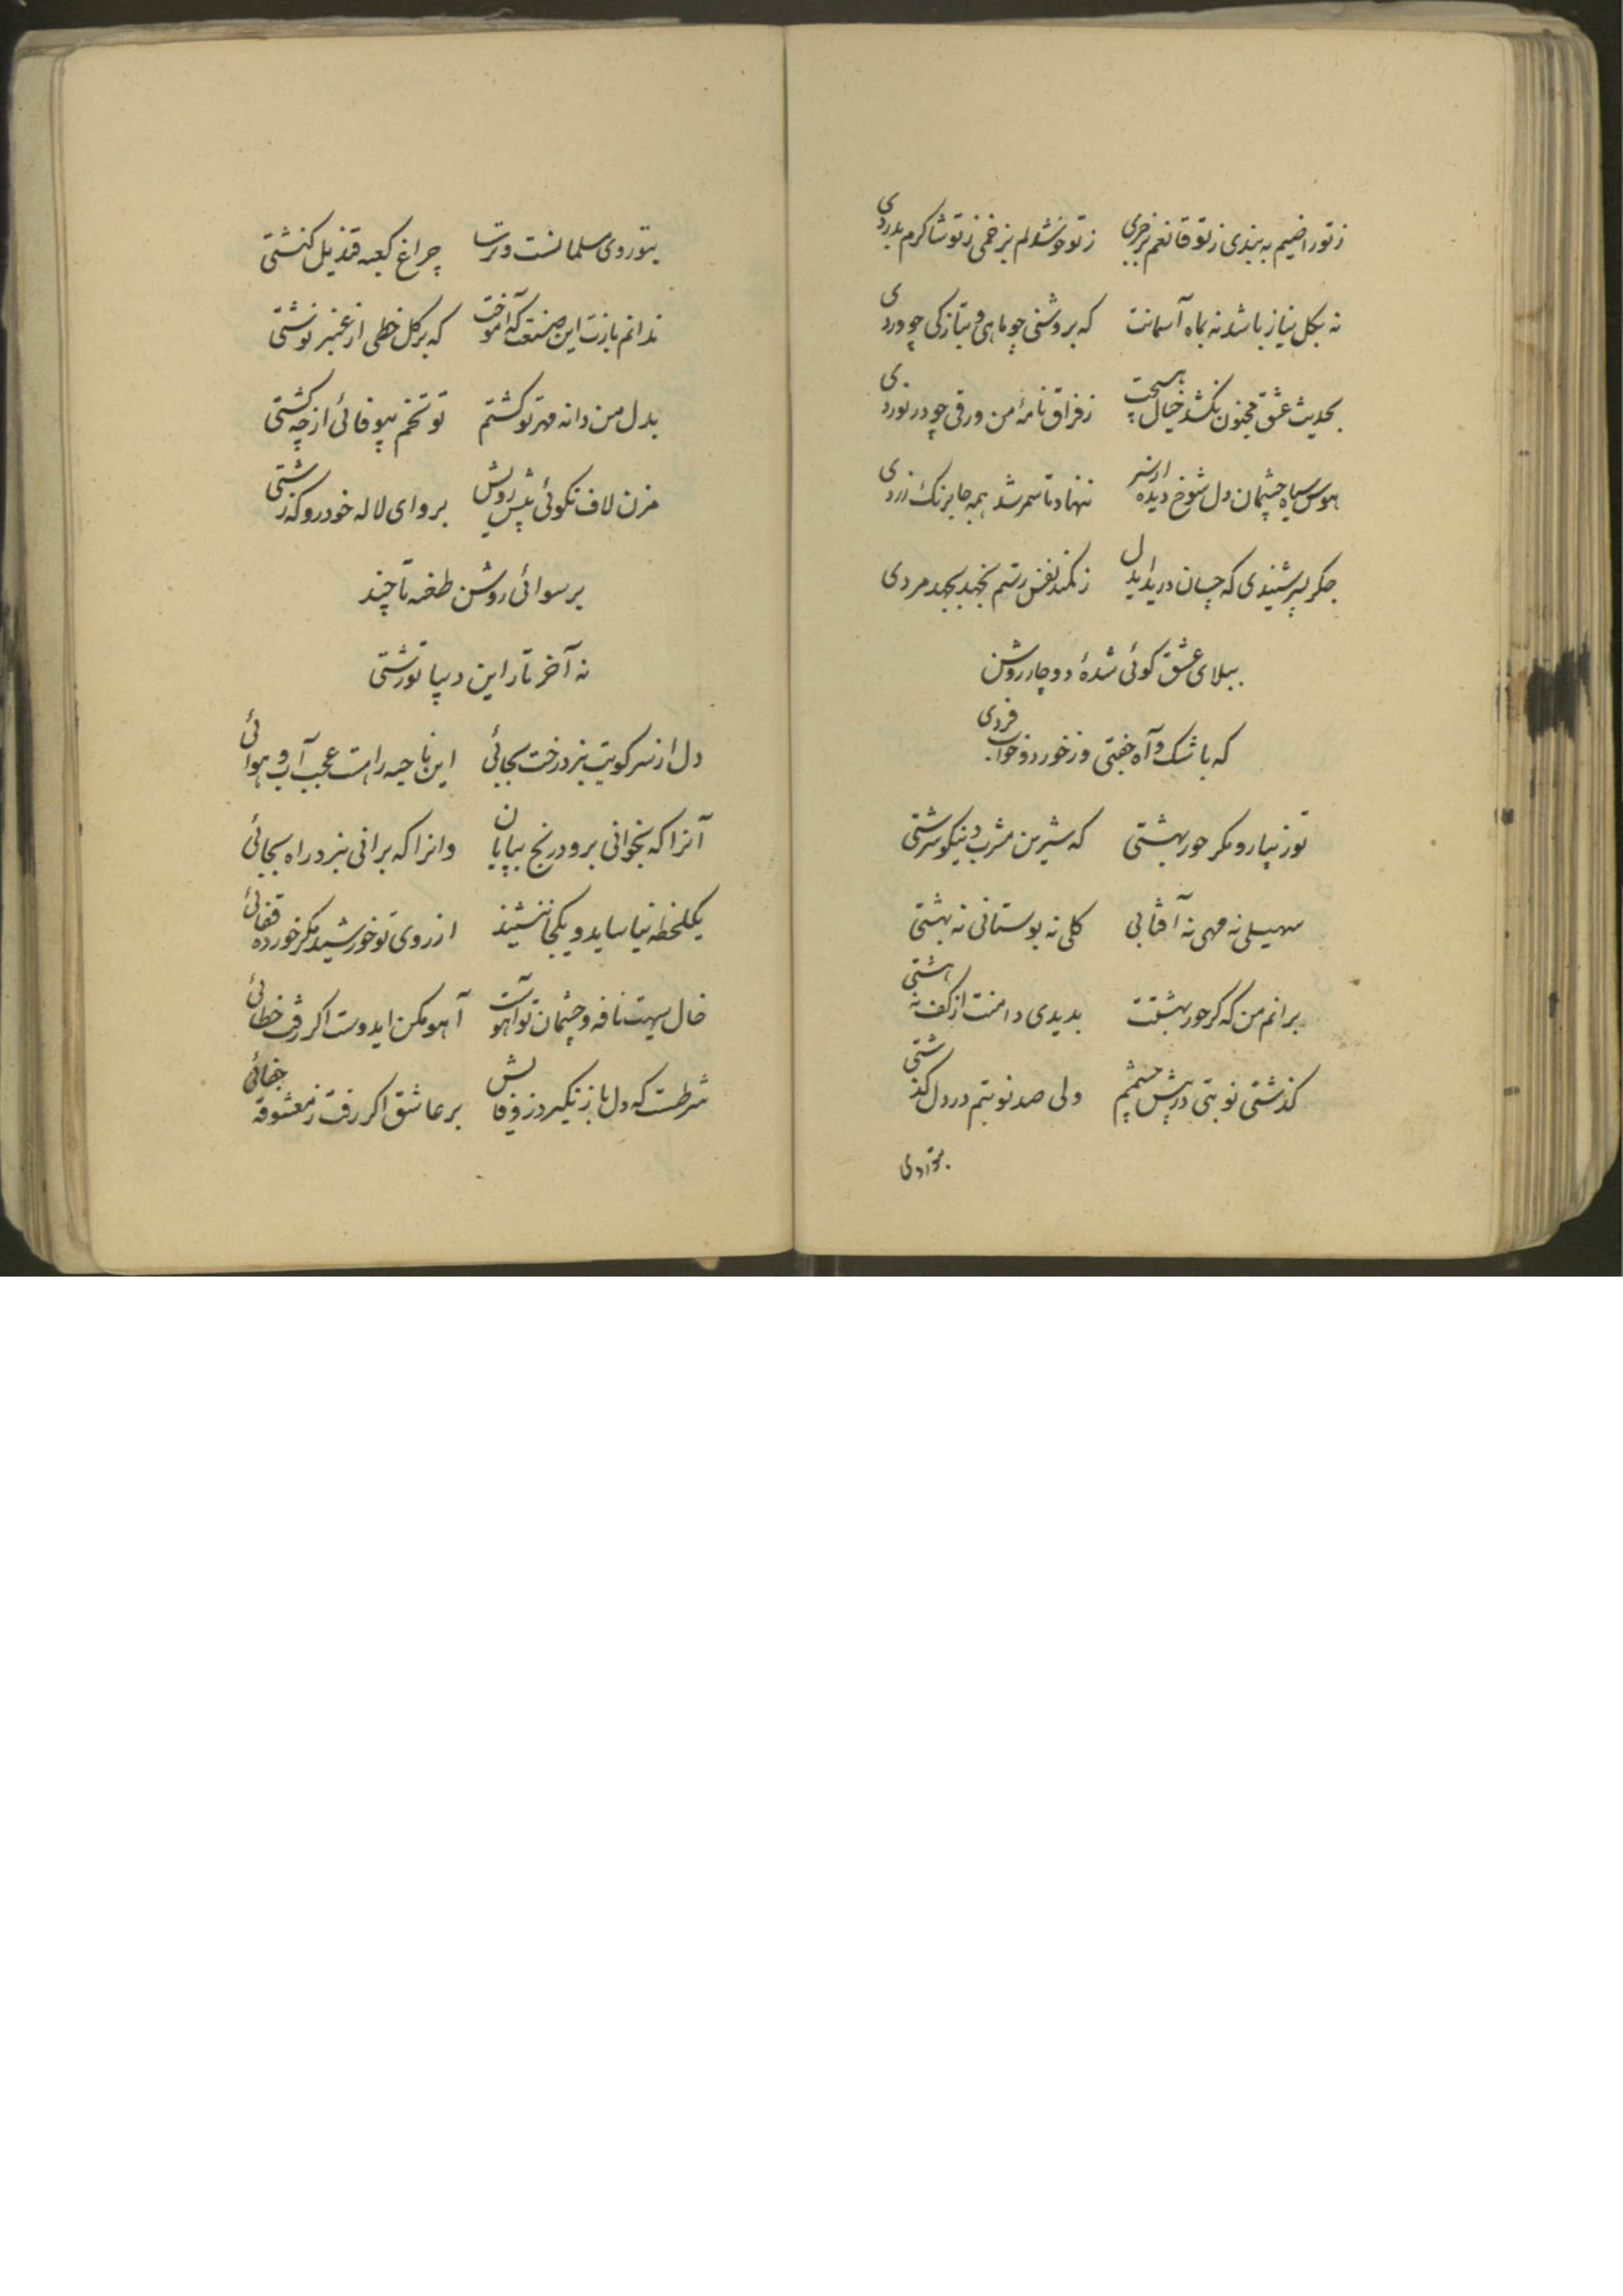 ز تو راضیم به بندی ز تو قانعم بزجری    ز تو خوشدلم بزخمی ز تو شاکرم بدردی
نه بگل نیاز باشد نه بماه آسمانت    که بروشنی چو ماهی و بتازگی چو وردی
بحدیث عشق مجنون نکشد خیال هیچت    ز فراق نامهٔ من ورقی چو در نوردی
هوس سیاه چشمان دل شوخ دیده از سر    ننهاد تا سمر شد همه جا برنک زردی
جکر شنیدی که چسان درید ایدل    ز کمند نفس رستم بجهد بجهد مردی
ببلای عشق کوئی شدهٔ دوچار روشن
که باشک و آه جفتی وز خورد و خواب فردی
تو زیبا رو مکر حور بهشتی    که شیرین مشرب و نیکو سرشتی
سهیلی نه مهی نه آفتابی    کلی نه بوستانی نه بهشتی
برانم من که کر حور بهشتت    بدیدی دامنت از کف نهشتی
کذشتی نوبتی در پیش چشمم    ولی صد نوبتم در دل کذشتی
بتو روی مسلمانست و ترسا    چراغ کعبه قندیل کنشتی
ندانم بازت این صنعت که آموخت    که بر کل خطی از عنبر نوشتی
بدل من دانه مهر تو کشتم    تو تخم بیوفائی از چه کشتی
مزن لاف نکوئی پیش رویش    برو ای لاله خودرو که زشتی
برسوائی روشن طعنه تا چند
نه آخر تار این دیبا تو رشتی
دل از سر کویت نبرد رخت بجائی    این ناحیه راهست عجب آب و هوائی
آنرا که بخوانی برود رنج بپایان    وانرا که برانی نبرد راه بجائی
یکلحظه نیاساید و یکجا ننشیند    از روی تو خورشید مکر خورده قفائی
خال سیهت نافه و چشمان تو آهوست    آهو مکن ایدوست اکر رفت خطائی
شرطست که دل باز نکیرد ز وفایش    بر عاشق اکر رفت ز معشوقه جفائی